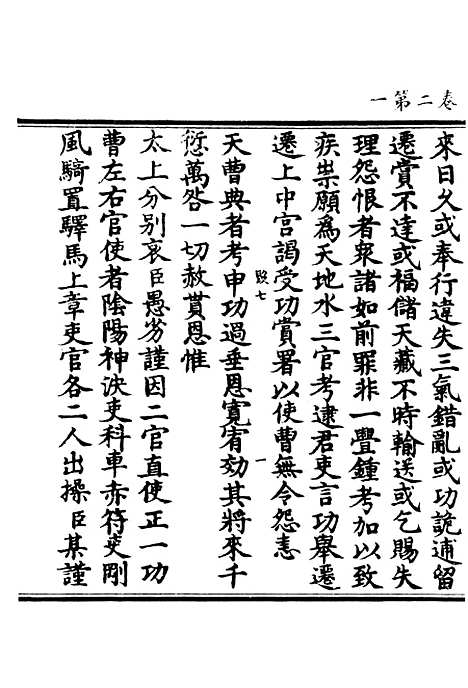 卷二第一
來日久或奉行違失三氣錯亂或功詭逋留
遷賞不達或福儲天藏不時輸送或乞賜失
理怨恨者衆諸如前罪非一疊鍾考加以致
疾祟願爲天地水三官考逮君吏言功舉遷
遷上中宮謁受功賞署以使曹無令怨恚
殴七 一
天曹典者考申功過垂恩寬宥効其將來千
愆萬咎一切赦貰恩惟
太上分別哀臣愚劣謹因二官直使正一功
曹左右官使者陰陽神決吏科車赤符吏剛
風騎置驛馬上章吏官各二人出操臣某謹